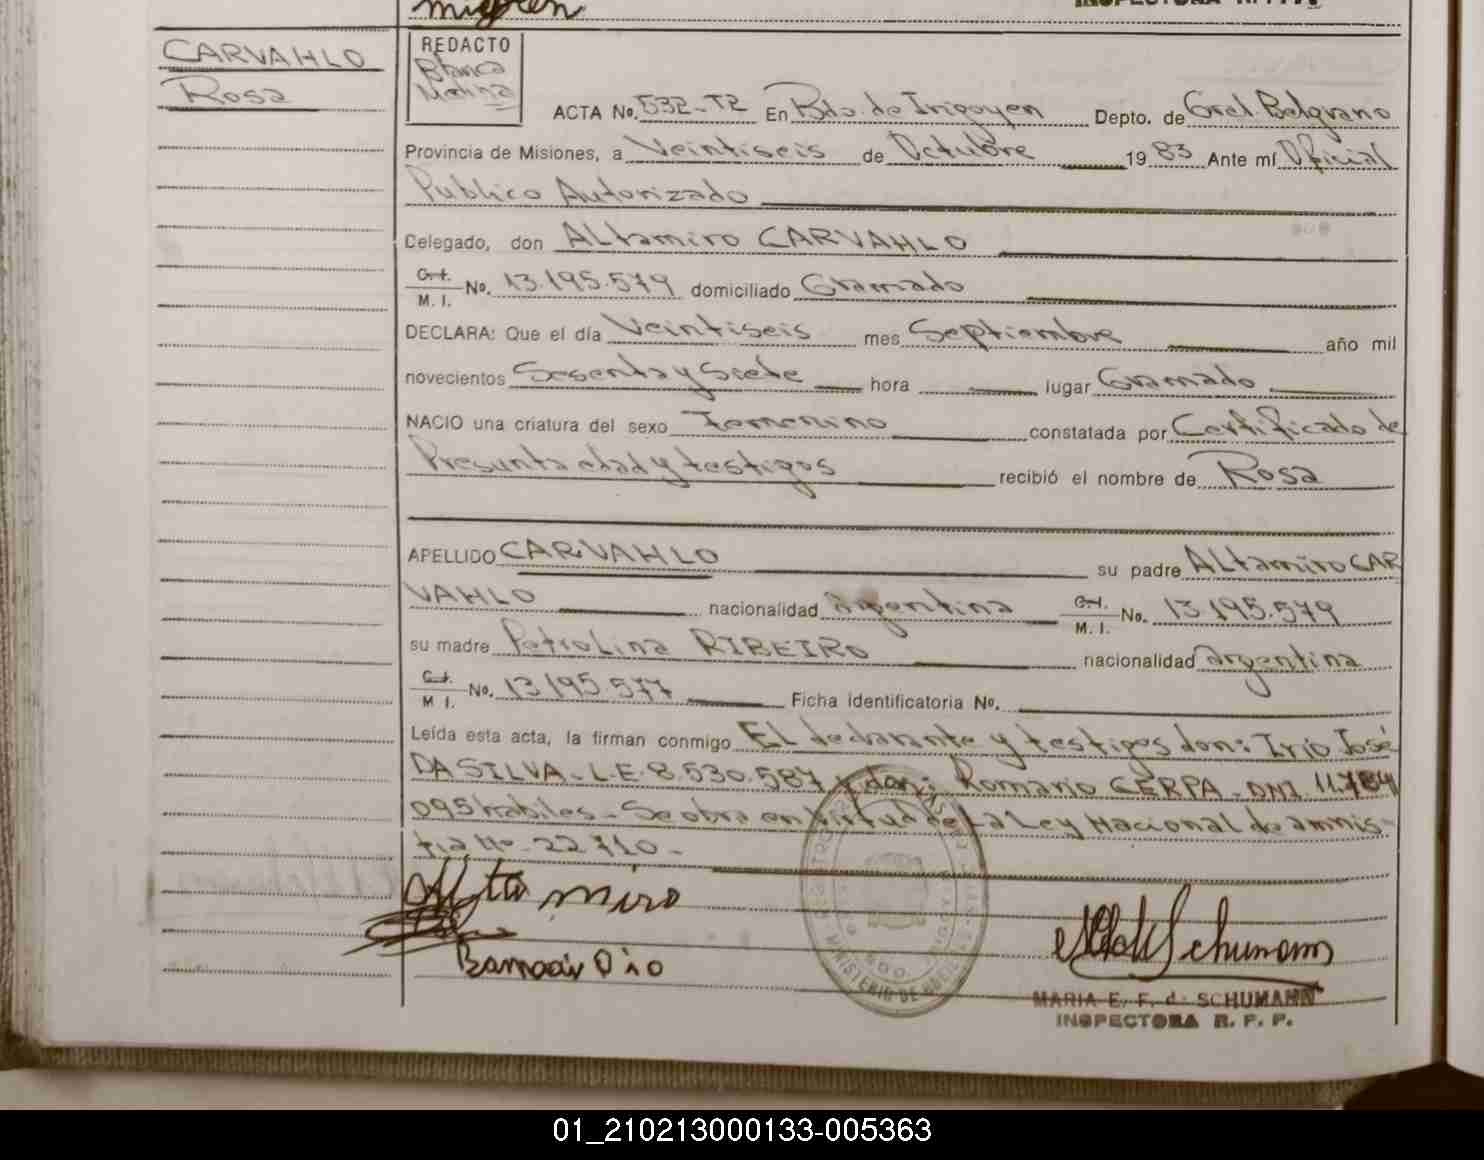 CARVAHLO
Rosa
REDACTO
Blanca
Medina
ACTA No. 532-T2 En Bdo. de Irigoyen Depto. de Gral. Belgrano
Provincia de Misiones, a Veintiseis de Octubre 1983 Ante mí Oficial
Publico Autorizado
Delegado, don ALtamiro CARVAHLO
C. I.
M. I. No. 13.195.579 domiciliado Gramado
DECLARA: Que el día Veintiseis mes Septiembre año mil
novecientos Sesenta y Siete hora lugar Gramado
NACIO una criatura del sexo Femenino constatada por Certificado de
Presunta edad y testigos recibió el nombre de Rosa
APELLIDO CARVAHLO su padre ALtamiro CAR
VAHLO nacionalidad argentina C. I.
M. I. No. 13.195.579
su madre PetroLina RIBEIRO nacionalidad argentina
C. I.
M I. No. 13.195.577 Ficha identificatoria No.
Leída esta acta, la firman conmigo EL declarante y testigos don: Irio José
DA SILVA - L.E. 8.530.587 y don; Romario CERPA - DNI. 11.784
095 habiles - Se obra en virtud de La Ley Nacional de amnis-
tia Nº 22.710-
Alta miro
MARIA E. F. d. SCHUMANN
INSPECTORA R. P. P.
01_210213000133-005363